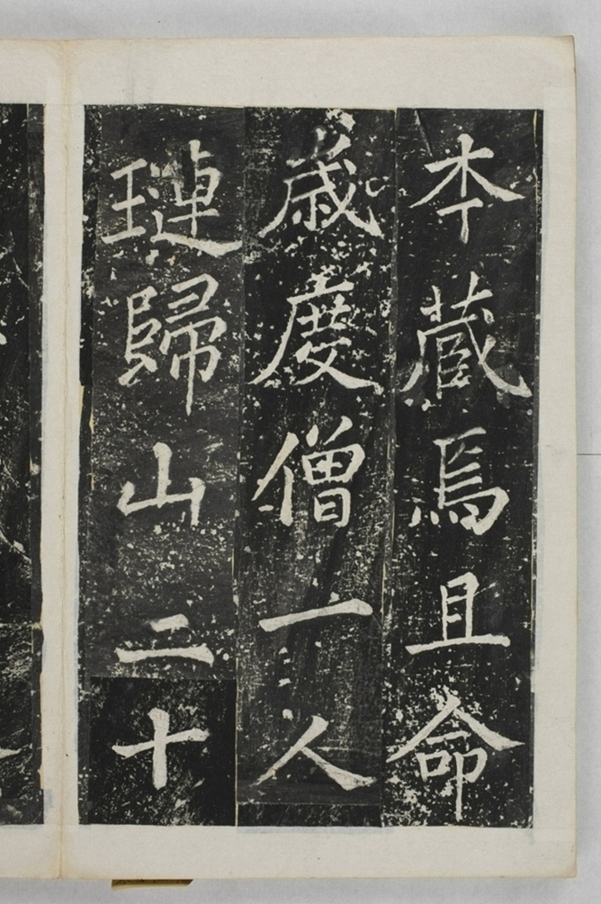 本藏焉且命
歲度僧一人
璉歸山二十